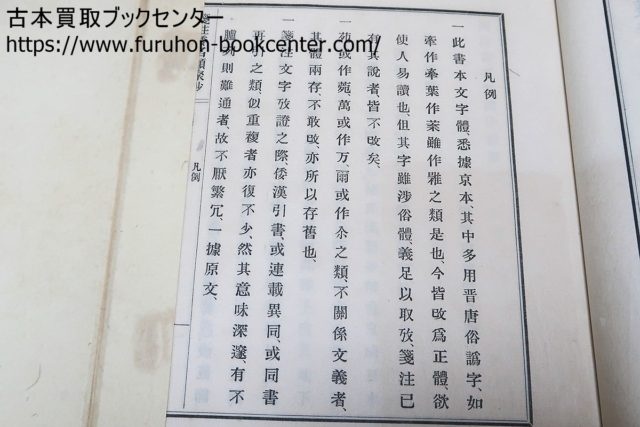 古本買取ブックセンター
https://www.furuhon-bookcenter.com/
凡例
一此書本文字體、悉據京本、其中多用晋唐俗譌字、如
牽作𤚩葉作𦯧雖作𨿽之類是也、今皆改爲正體、欲
使人易讀也、但其字雖涉俗體、義足以取攷、箋注已
有其說者皆不改矣、
一苑或作菀、萬或作万、爾或作尒之類、不關係文義者、
其體兩存、不敢改、亦所以存舊也、
一箋注文字攷證之際、倭漢引書、或連載異同、或同書
再引之類、似重複者亦復不少、然其意味深邃、有不
則雖通者、故不厭繁冗、一據原文、
類聚鈔
凡例